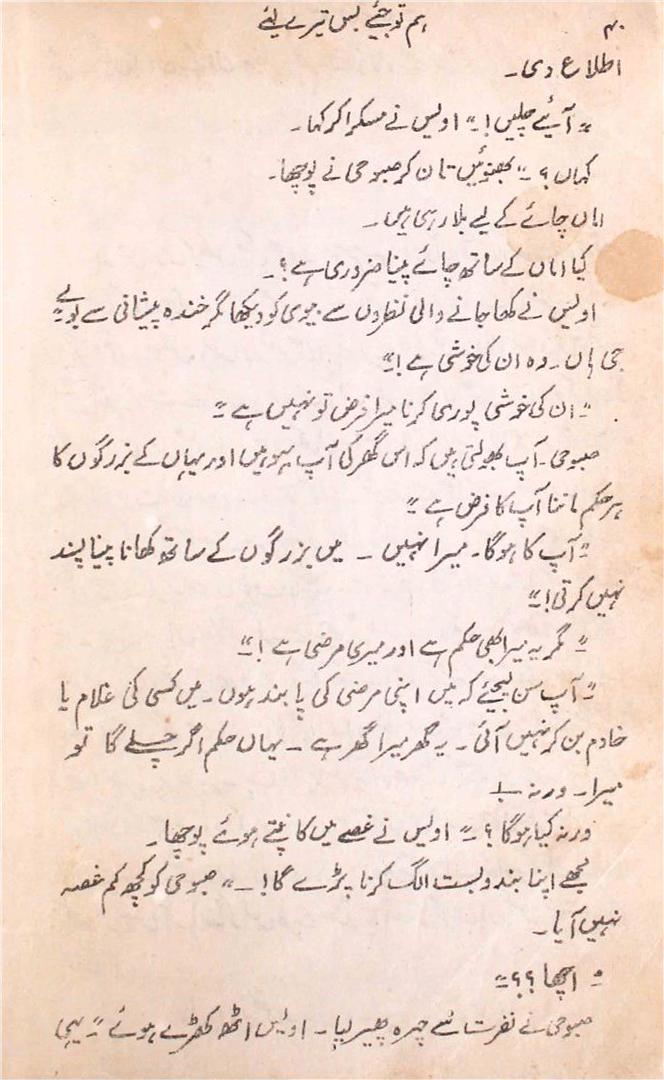 ۴۰
ہم تو جئے بس تیرے لئے
اطلاع دی۔
"آیئے چلیں!" اویس نے مسکرا کر کہا۔
کہاں؟" بھنوئیں تان کر صبوحی نے پوچھا۔
اماں چائے کے لیے بلا رہی ہیں۔
کیا اماں کے ساتھ چائے پینا ضروری ہے؟۔
اویس نے کھا جانے والی نظروں سے بیوی کو دیکھا مگر خندہ پیشانی سے بولے"
جی ہاں۔ وہ ان کی خوشی ہے!"
"ان کی خوشی پوری کرنا میرا فرض تو نہیں ہے"
صبوحی۔ آپ بھولتی ہیں کہ اس گھر کی آپ بہو ہیں اور یہاں کے بزرگوں کا
ہر حکم ماننا آپ کا فرض ہے"
"آپ کا ہوگا۔ میرا نہیں ۔ میں بزرگوں کے ساتھ کھانا پینا پسند
نہیں کرتی!"
"مگر یہ میرا بھی حکم ہے اور میری مرضی ہے!"
"آپ سن لیجئے کہ میں اپنی مرضی کی پابند ہوں۔ میں کسی کی غلام یا
خادم بن کر نہیں آئی۔ یہ گھر میرا گھر ہے۔ یہاں حکم اگر چلے گا تو
میرا۔ ورنہ۔
ورنہ کیا ہوگا؟" اویس نے غصے میں کانپتے ہوئے پوچھا۔
مجھے اپنا بندوبست الگ کرنا پڑے گا!۔" صبوحی کو کچھ کم غصہ
نہیں آیا۔
"اچھا؟؟"
صبوحی نے نفرت سے چہرہ پھیر لیا۔ اویس اٹھ کھڑے ہوئے "یہی